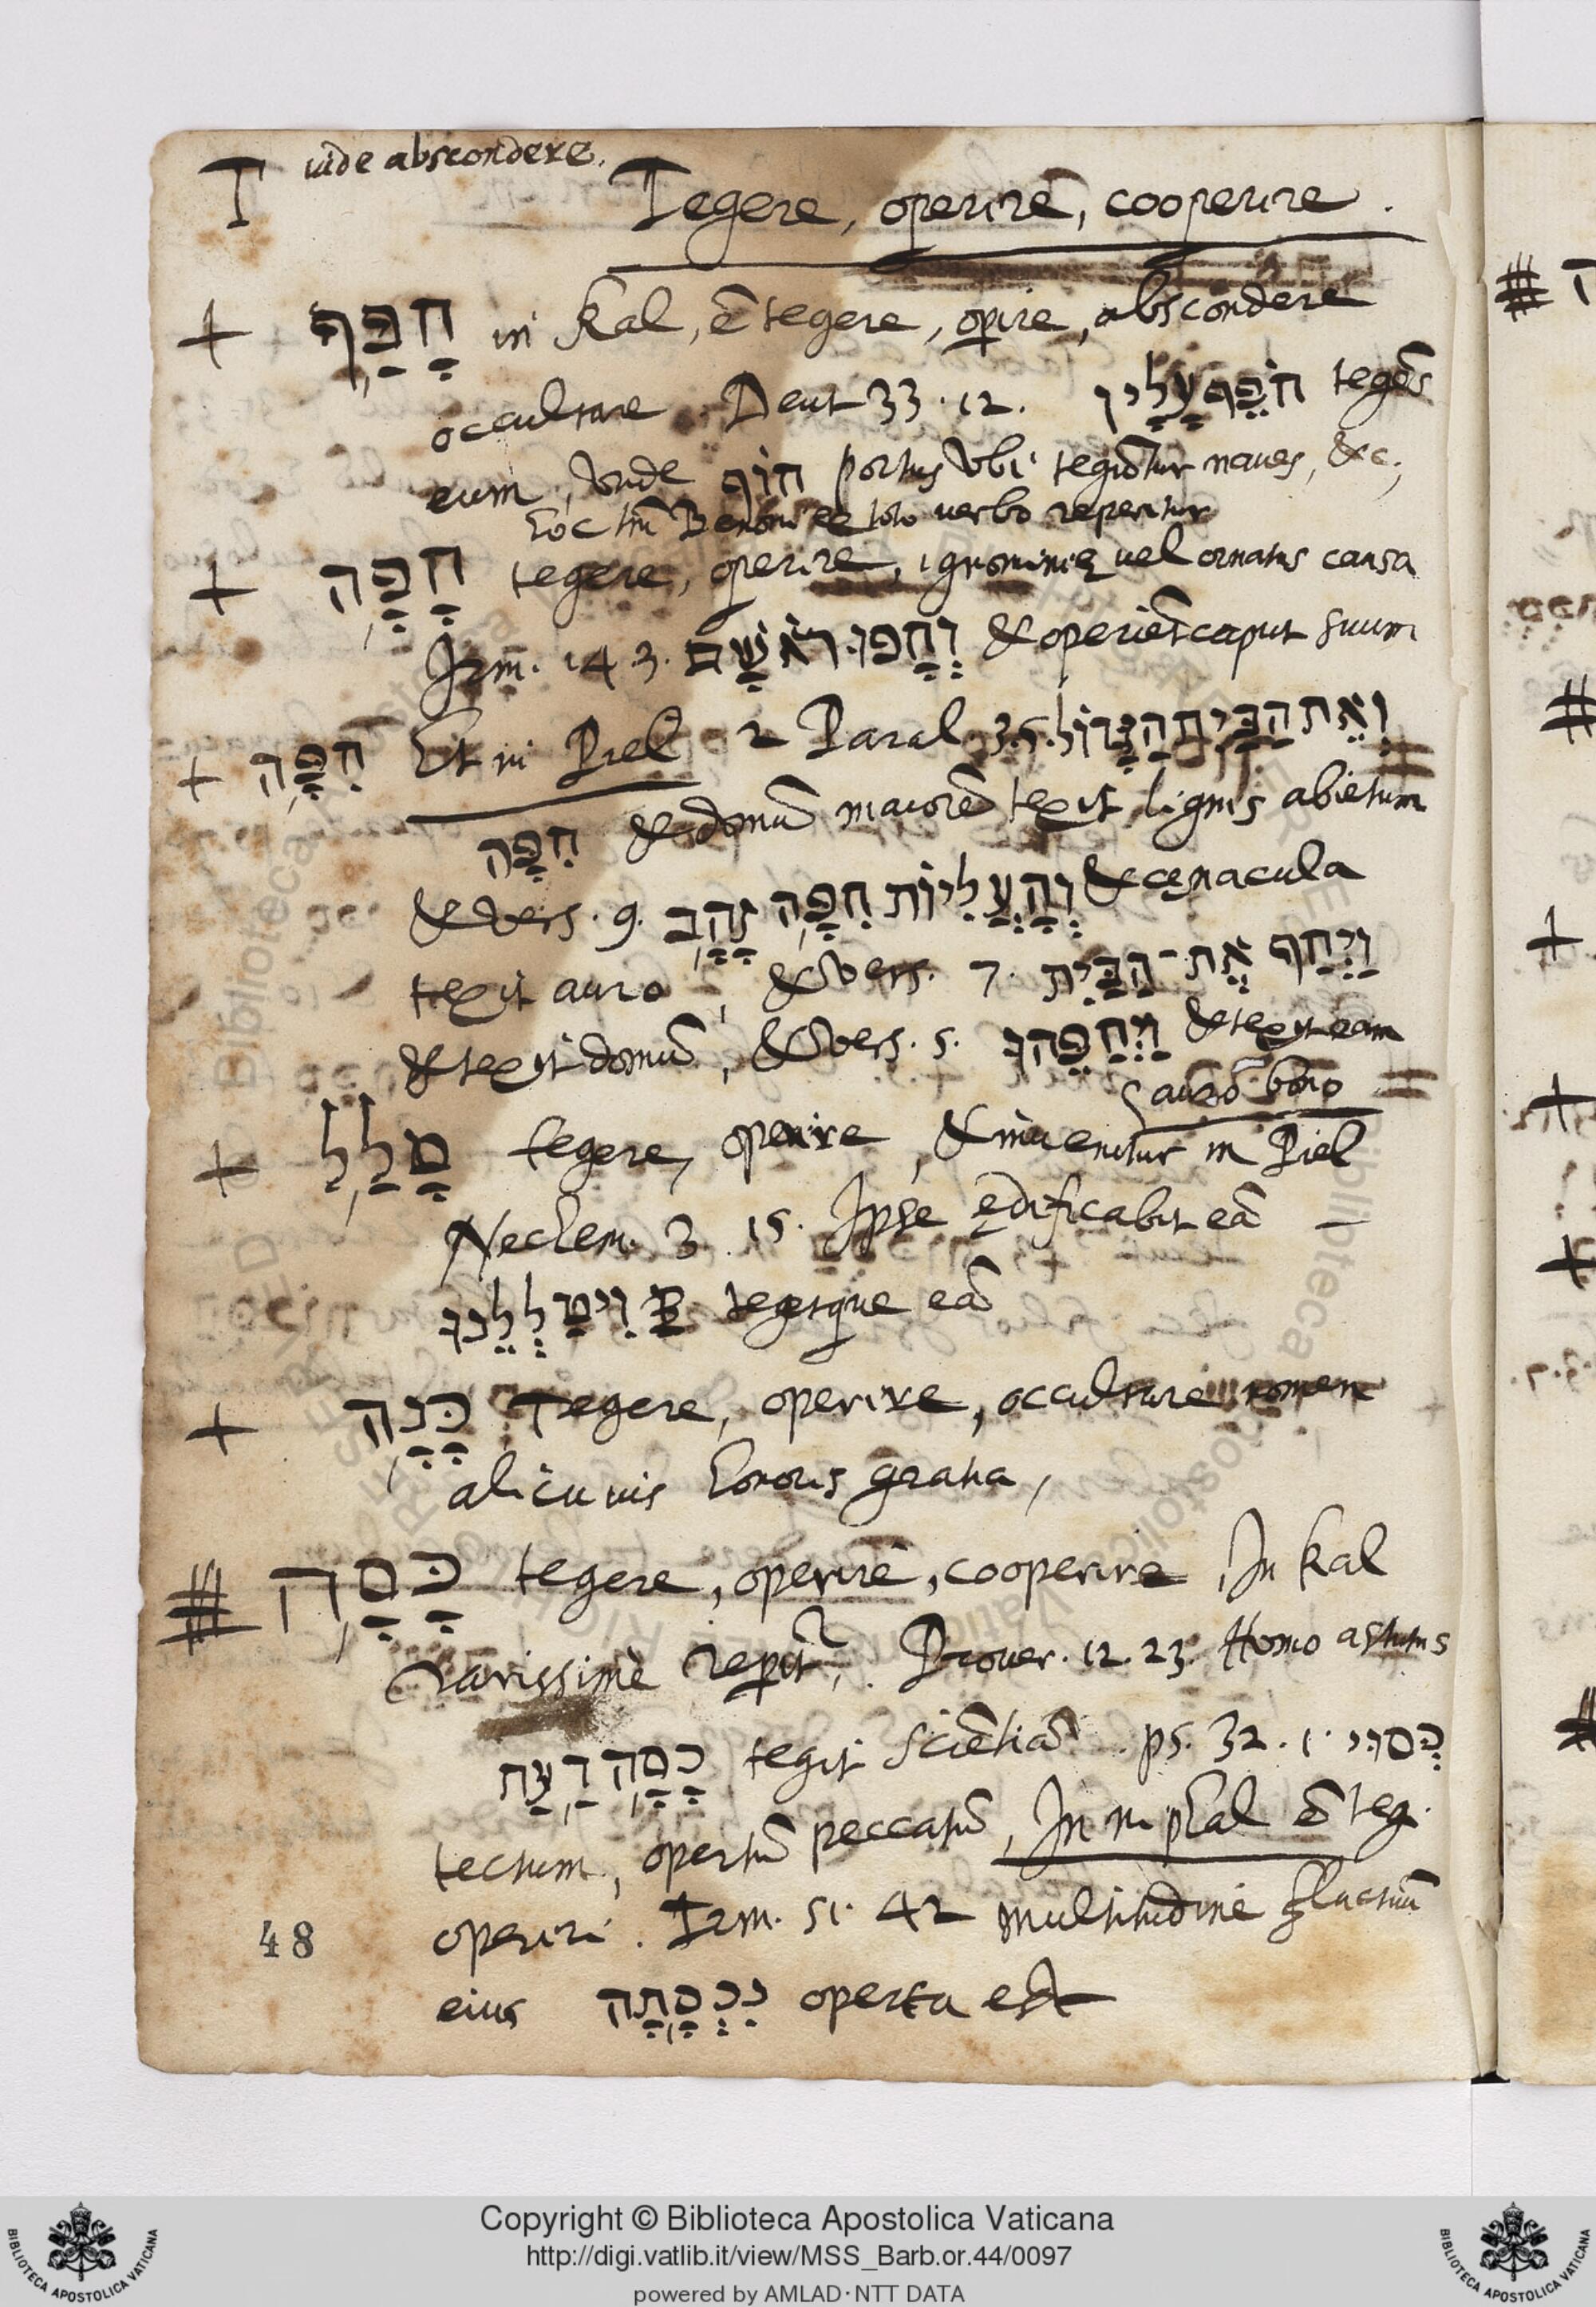 T vide abscondere.
Tegere, operire, cooperire.
+ חָפַף in Kal, ē tegere, opire, abscondere
occultare. Deut 33.12. חֹפֵף עָלָיו tegēs
eum, vnde חוֹף portus vbi tegūtur naues, &c;
hoc tm̄ Benoni ex toto verbo reperitur
+ חָפָה tegere, operire, ignominię vel ornatus causa
Irm. 14.3. וְחָפוּ רֹאשָׁם & operiēt caput suum
+ חִפָּה Et in Piel 2 Paral. 3.5. וְאֵת הַבַּיִת הַגָּדוֹל
חִפָּה & domū maiorē texit lignis abietum
& vers. 9. וְהָעֲלִיּוֹת חִפָּה זָהָב & cęnacula
texit auro, & vers. 7. וַיְחַף אֶת־הַבַּיִת
& texit domū, & vers. 5. וַיְחַפֵּהוּ & texit eam
auro bono
+ טָלַל tegere, operire, & inuenitur in Piel
Nechem. 3. 15. Ipse ędificabit eā
וִיטַלְלֶנּוּ tegetque eā
+ כָּנָה Tegere, operire, occultare nomen
alicuius honoris gratia,
# כָּסָה tegere, operire, cooperire, In Kal
rarissimè reperit~, Prouer. 12. 23. Homo astutus
כֹּסֶה דָּעַת tegit sciētiā. ps. 32. 1. כְּסוּי
tectum, opertū peccatū, In niphal ē teg.
operiri. Irm. 51. 42 multitudine fluctuū
eius נִכְסָתָה operta est
48
Copyright © Biblioteca Apostolica Vaticana
http://digi.vatlib.it/view/MSS_Barb.or.44/0097
powered by AMLAD·NTT DATA